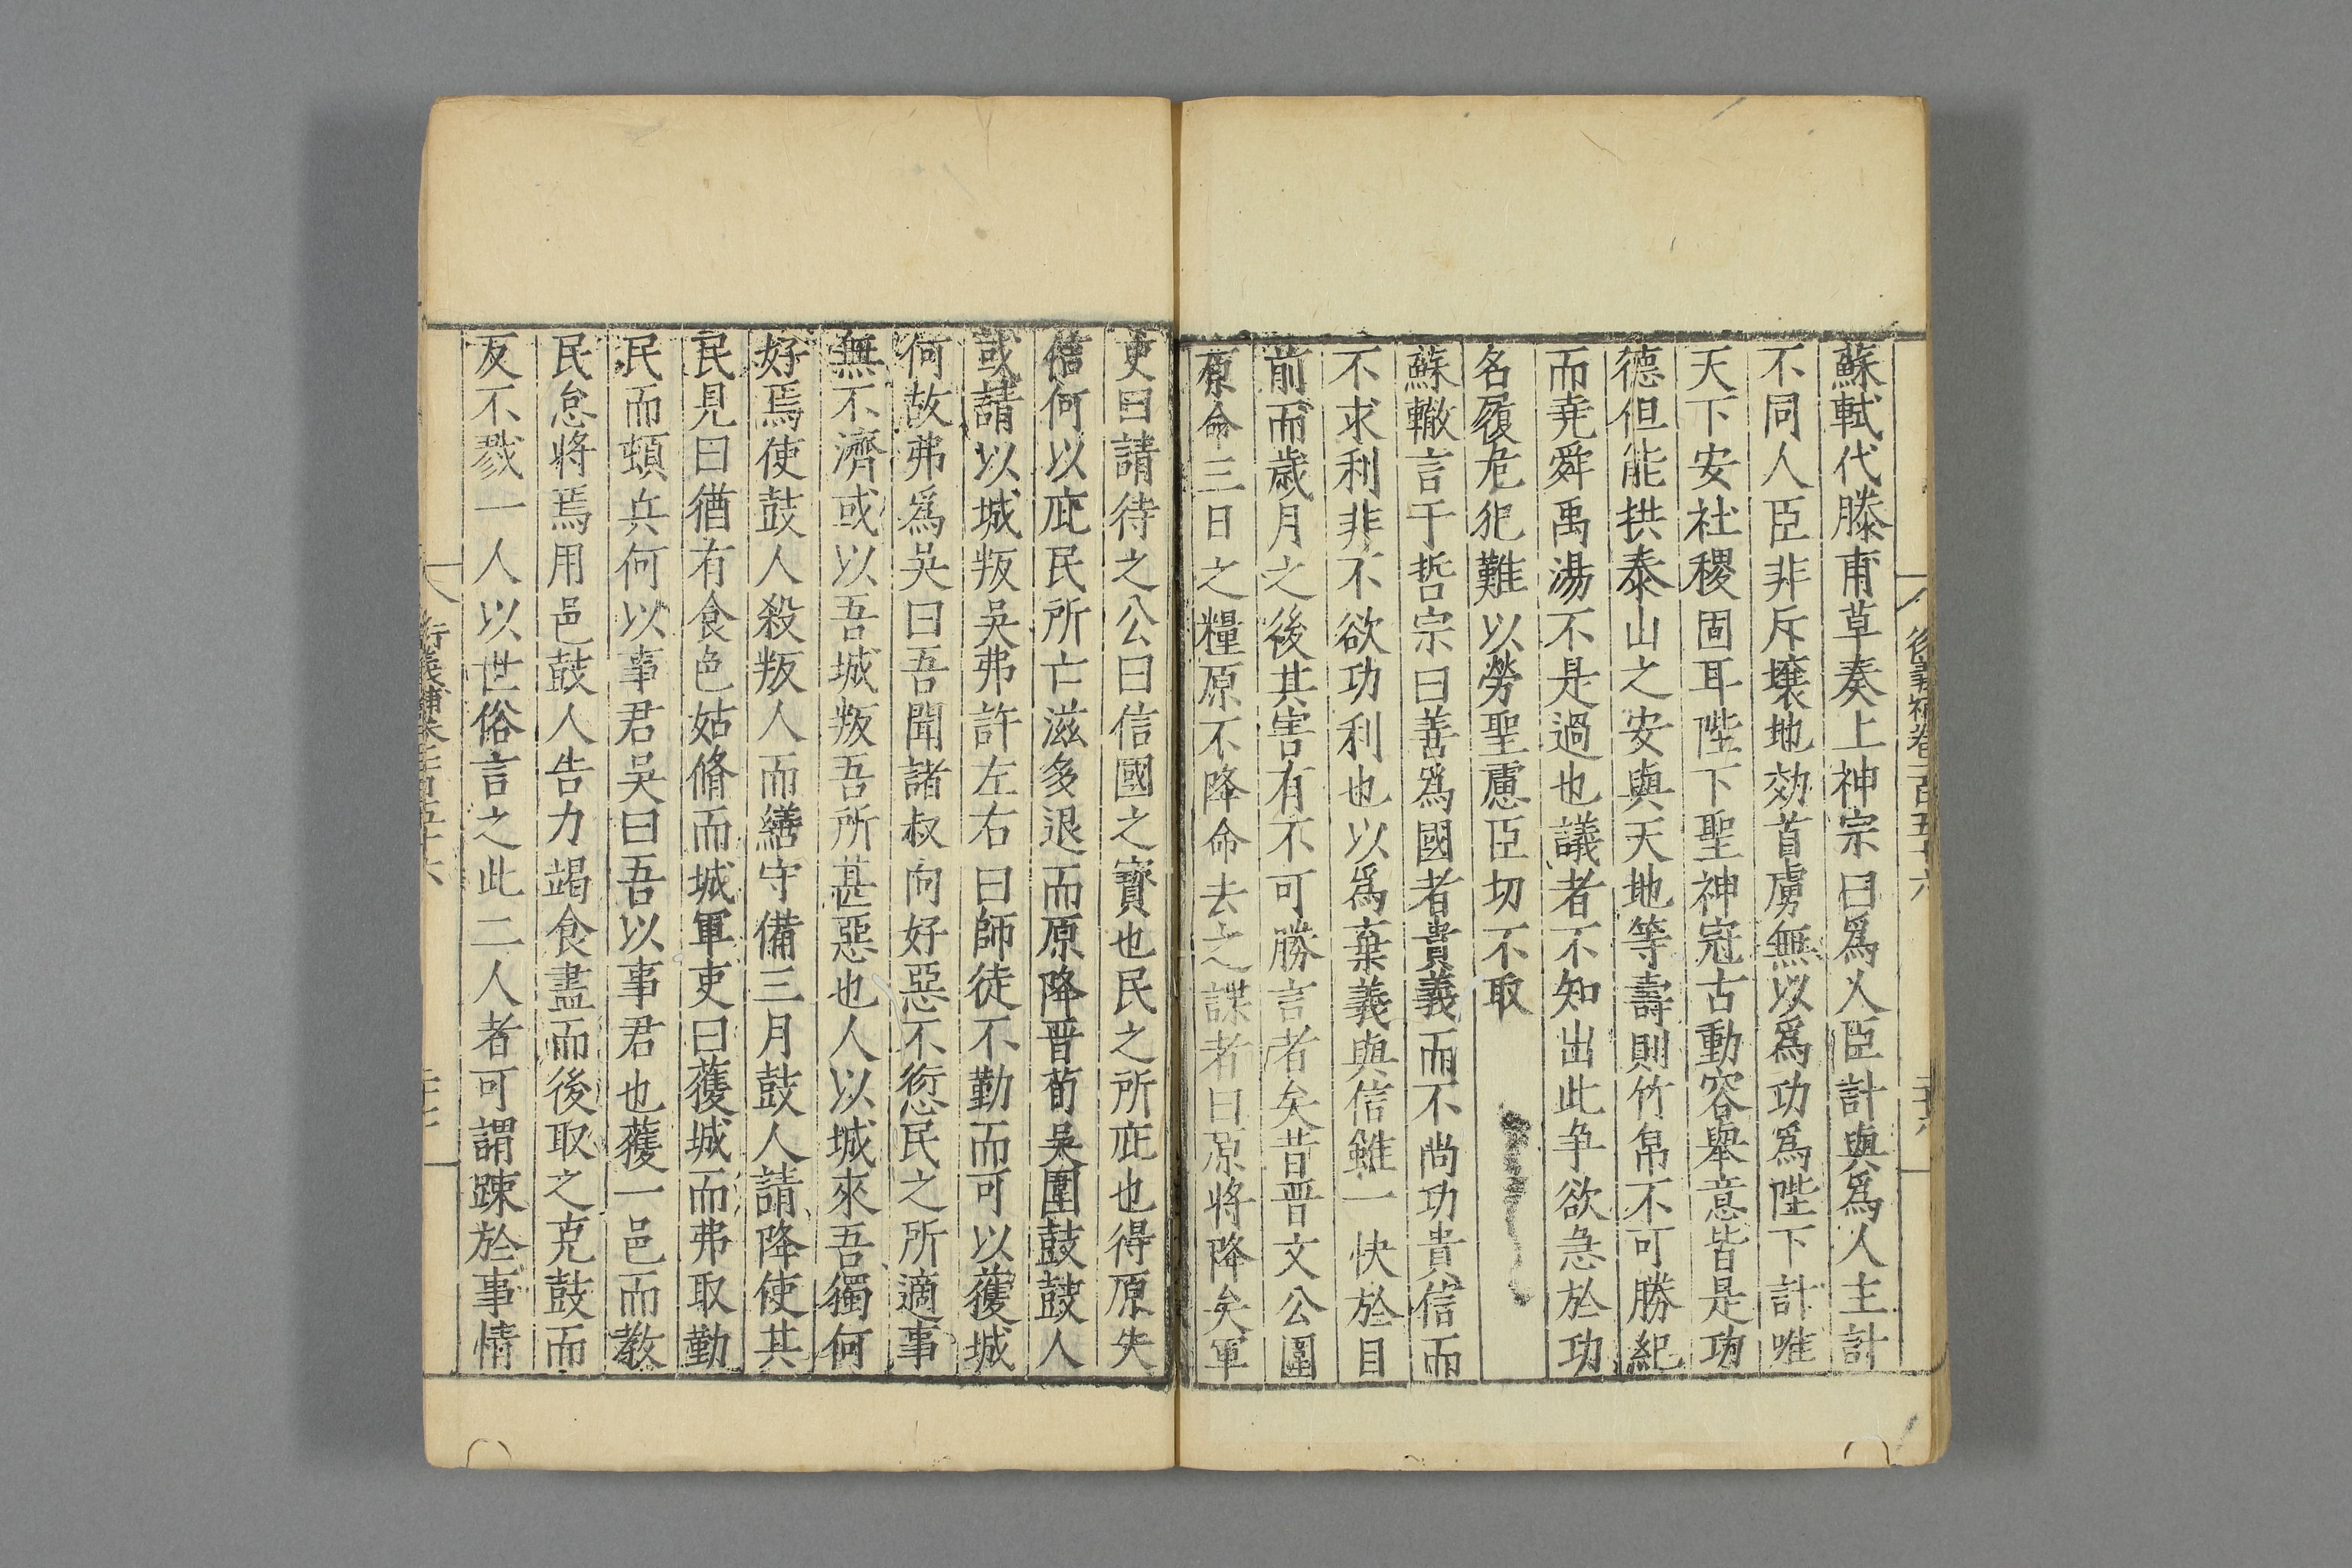 蘇軾代滕甫草奏上神宗曰爲人臣計與爲人主計
不同人臣非斥壤地効首虜無以爲功爲陛下計唯
天下安社稷固耳陛下聖神冠古動容舉意皆是功
德但能拱泰山之安與天地等壽則竹帛不可勝紀
而堯舜禹湯不是過也議者不知出此争欲急於功
名履危犯難以勞聖慮臣切不取
蘇轍言于哲宗曰善爲國者貴義而不尚功貴信而
不求利非不欲功利也以爲棄義與信雖一快於目
前而歲月之後其害有不可勝言者矣昔晋文公圍
原命三日之糧原不降命去之諜者曰原將降矣軍
吏曰請待之公曰信國之寶也民之所庇也得原失
信何以庇民所亡滋多退而原降晋荀吳圍鼓鼓人
或請以城叛吳弗許左右曰師徒不勤而可以獲城
何故弗爲吳曰吾聞諸叔向好惡不愆民之所適事
無不濟或以吾城叛吾所甚惡也人以城來吾獨何
好焉使鼓人殺叛人而繕守備三月鼓人請降使其
民見曰猶有食色姑脩而城軍吏曰獲城而弗取勤
民而頓兵何以事君吳曰吾以事君也獲一邑而教
民怠將焉用邑鼓人告力竭食盡而後取之克鼓而
反不戮一人以世俗言之此二人者可謂踈於事情